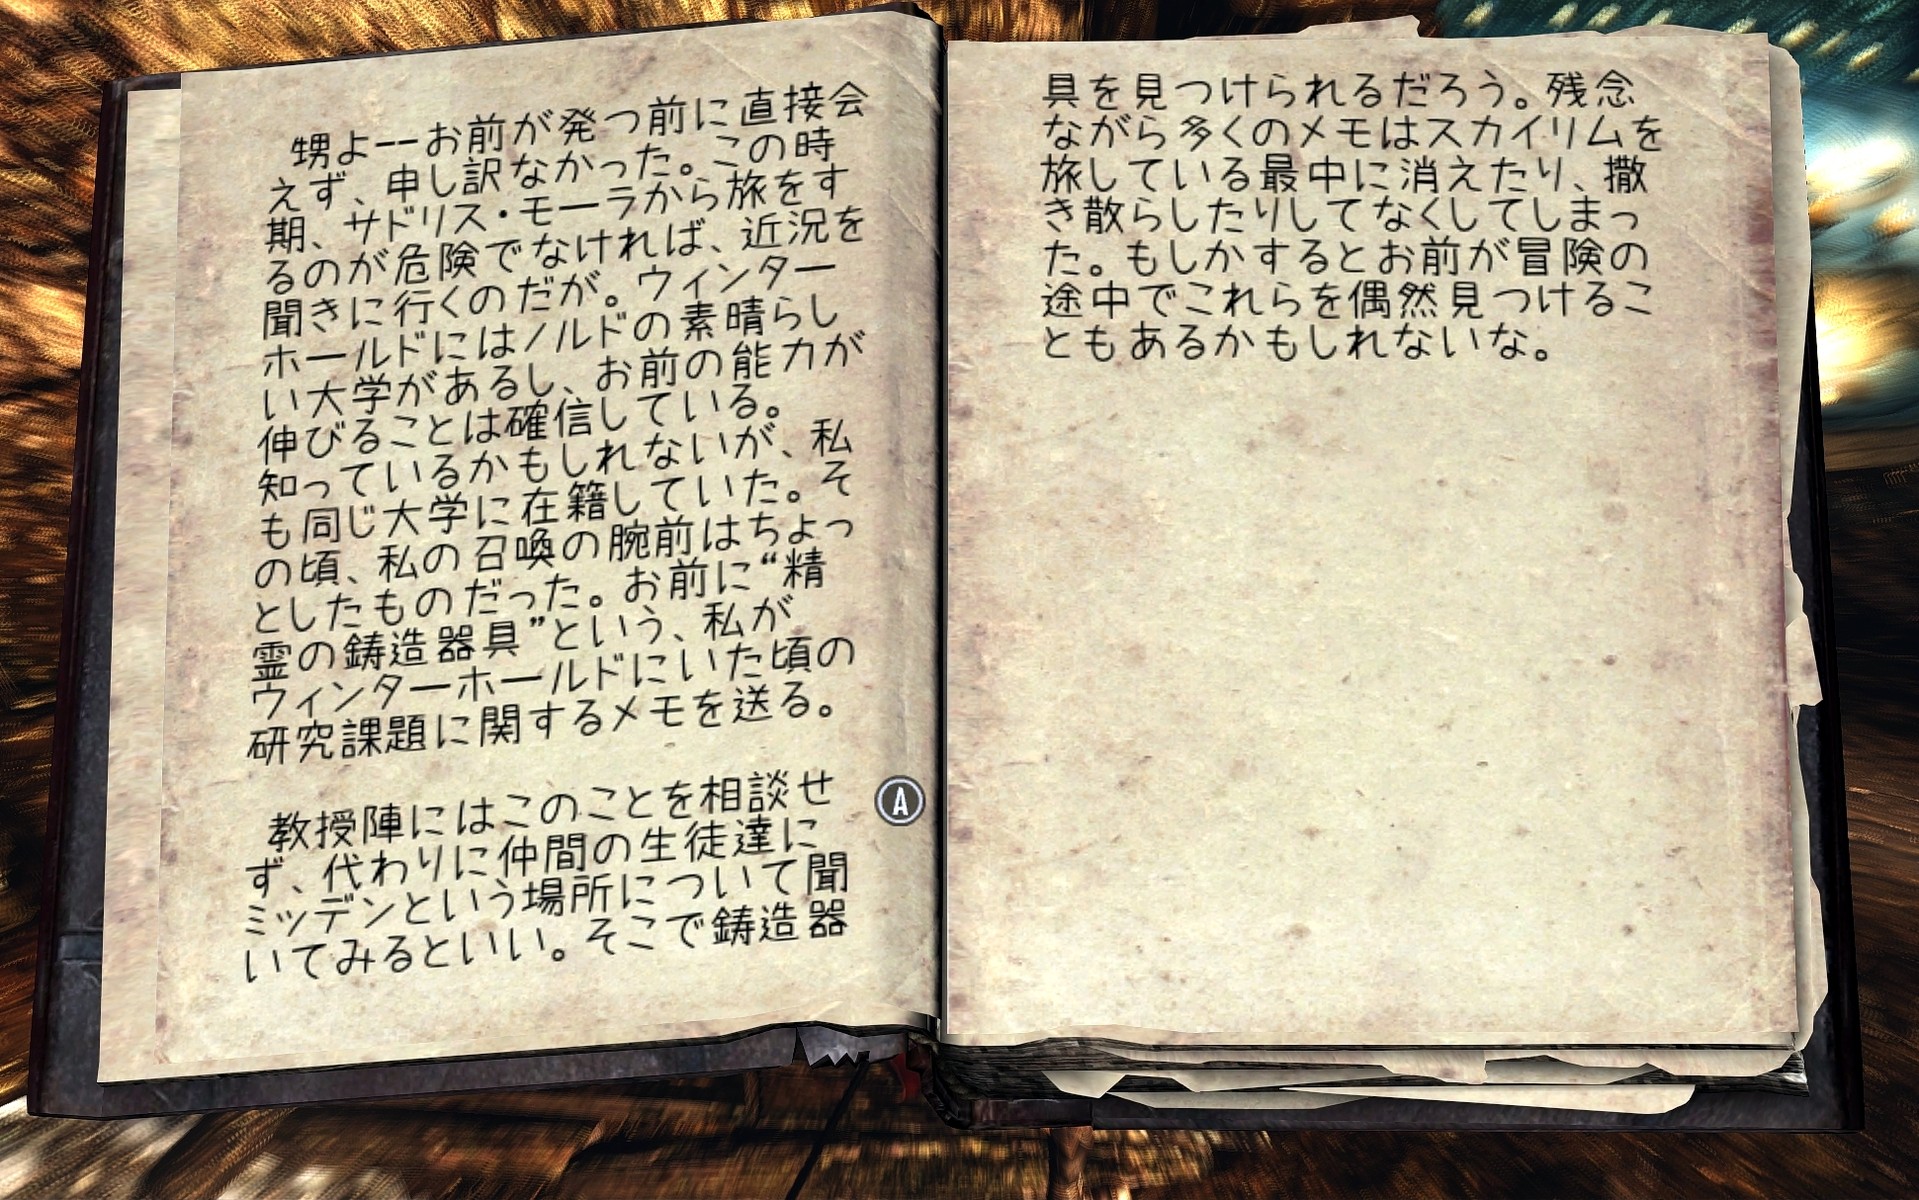 甥よ--お前が発つ前に直接会
えず、申し訳なかった。この時
期、サドリス・モーラから旅をす
るのが危険でなければ、近況を
聞きに行くのだが。ウィンター
ホールドにはノルドの素晴らし
い大学があるし、お前の能力が
伸びることは確信している。
知っているかもしれないが、私
も同じ大学に在籍していた。そ
の頃、私の召喚の腕前はちょっ
としたものだった。お前に“精
霊の鋳造器具”という、私が
ウィンターホールドにいた頃の
研究課題に関するメモを送る。
教授陣にはこのことを相談せ
ず、代わりに仲間の生徒達に
ミッデンという場所について聞
いてみるといい。そこで鋳造器
A
具を見つけられるだろう。残念
ながら多くのメモはスカイリムを
旅している最中に消えたり、撒
き散らしたりしてなくしてしまっ
た。もしかするとお前が冒険の
途中でこれらを偶然見つけるこ
ともあるかもしれないな。